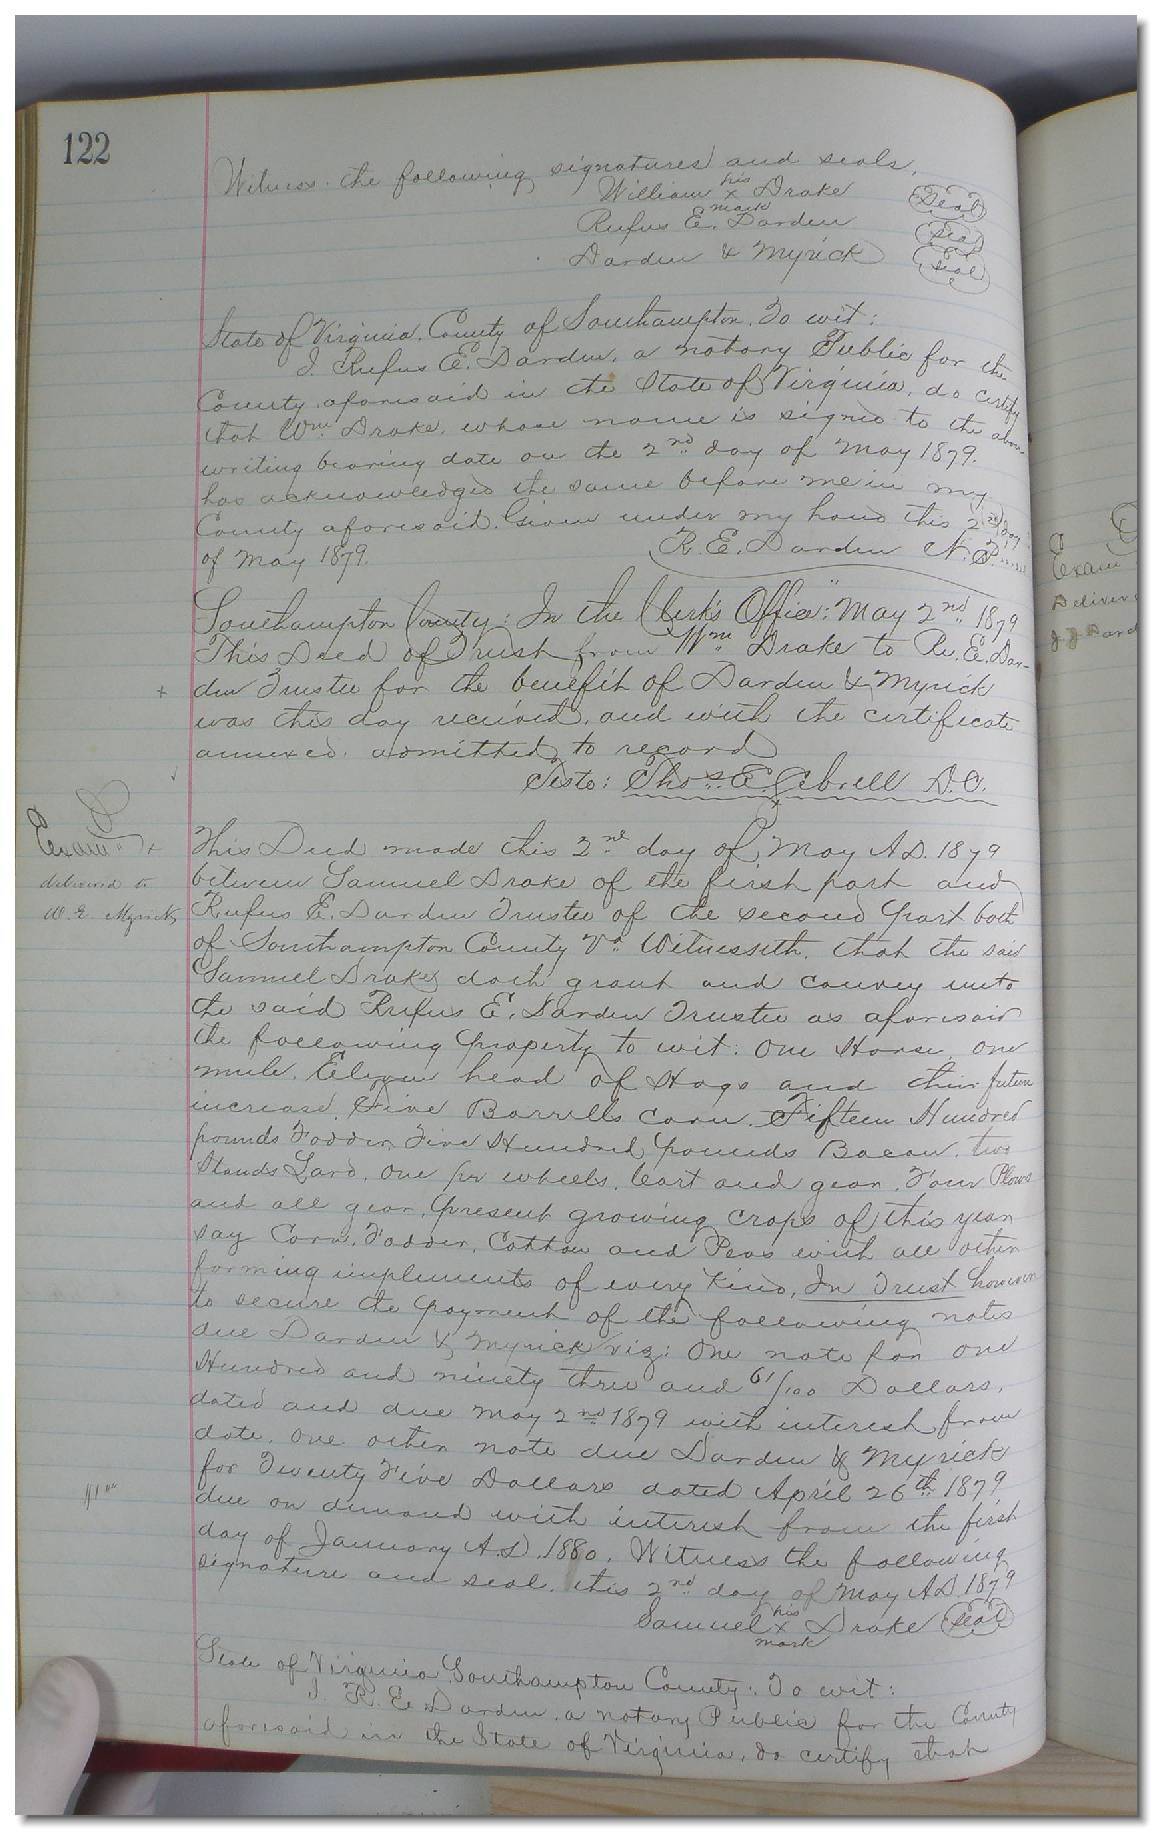 122
Witness the following signatures and seals,
his
William x Drake (Seal)
mark
Rufus E. Darden (Seal)
Darden & Myrick (Seal)
State of Virginia, County of Southampton, To wit:
I, Rufus E. Darden, a notary Public for the
County aforesaid in the State of Virginia, do certify
that Wm Drake, whose name is signed to the above
writing bearing date on the 2nd day of May 1879.
has acknowledged the same before me in my
County aforesaid. Given under my hand this 2nd day
of May 1879. R. E. Darden N. P.
Southampton County: In the Clerk's Office: May 2nd 1879
This Deed of Trust from Wm Drake to R. E. Dar-
+ den Trustee for the benefit of Darden & Myrick
was this day received, and with the certificate
annexed, admitted to record
Teste: Thos. E. Sebrell D.C.
Exam
delivered to
W. E. Myrick
This Deed made this 2nd day of May A.D. 1879
between Samuel Drake of the first part and
Rufus E. Darden Trustee of the second part both
of Southampton County Va Witnesseth, that the said
Samuel Drake doth grant and convey unto
the said Rufus E. Darden Trustee as aforesaid
the following property to wit: One Horse, one
mule, Eleven head of Hogs and their future
increase, Five Barrells corn, Fifteen Hundred
pounds Fodder, Five Hundred pounds Bacon, two
Stands Lard, one pr wheels, Cart and gear, Four Plows
and all gear, present growing crops of this year
say Corn, Fodder, Cotton and Peas with all other
farming implements of every kind, In Trust however
to secure the payment of the following notes
due Darden & Myrick viz: One note for one
Hundred and ninety three and 61/100 Dollars,
dated and due May 2nd 1879 with interest from
date, one other note due Darden & Myrick
for Twenty Five Dollars dated April 26th 1879
due on demand with interest from the first
day of January A.D. 1880. Witness the following
signature and seal, this 2nd day of May A.D. 1879
his
Samuel x Drake (Seal)
mark
State of Virginia Southampton County: To wit:
I, R. E. Darden, a notary Public for the County
aforesaid in the State of Virginia, do certify that
Exam